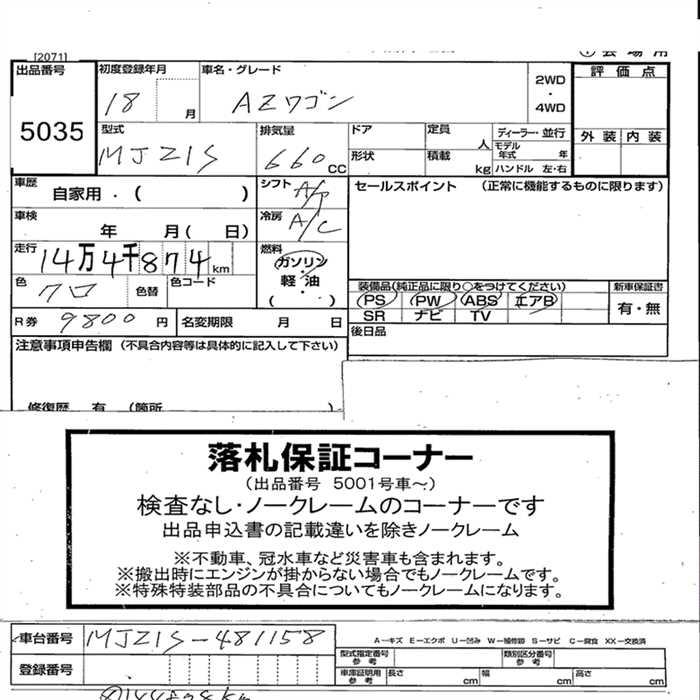 [2071]
出品番号 初度登録年月 車名・グレード 評価点
5035 18 月 AZワゴン 2WD・4WD
外装 内装
型式 排気量 ドア 定員 人 ディーラー・並行
MJ21S 660 CC 形状 積載 kg モデル年式 年 ハンドル 左・右
車歴 自家用・( ) シフト A/T セールスポイント (正常に機能するものに限ります)
車検 年 月( 日) 冷房 A/C
走行 14万4千874km 燃料 ガソリン・軽油・( )
色 クロ 色替 色コード
装備品(純正品に限り○をつけてください) 新車保証書
PS PW ABS エアB 有・無
SR ナビ TV
R券 9800円 名変期限 月 日 後日品
注意事項申告欄 (不具合内容等は具体的に記入して下さい)
修復歴 有 (箇所 )
落札保証コーナー
(出品番号 5001号車~)
検査なし・ノークレームのコーナーです
出品申込書の記載違いを除きノークレーム
※不動車、冠水車など災害車も含まれます。
※搬出時にエンジンが掛からない場合でもノークレームです。
※特殊特装部品の不具合についてもノークレームになります。
車台番号 MJ21S-481158 A-キズ E-エクボ U-凹み W-補修跡 S-サビ C-腐食 XX-交換済
型式指定番号 参考 類別区分番号 参考
登録番号 車庫証明用 参考 長さ cm 幅 cm 高さ cm